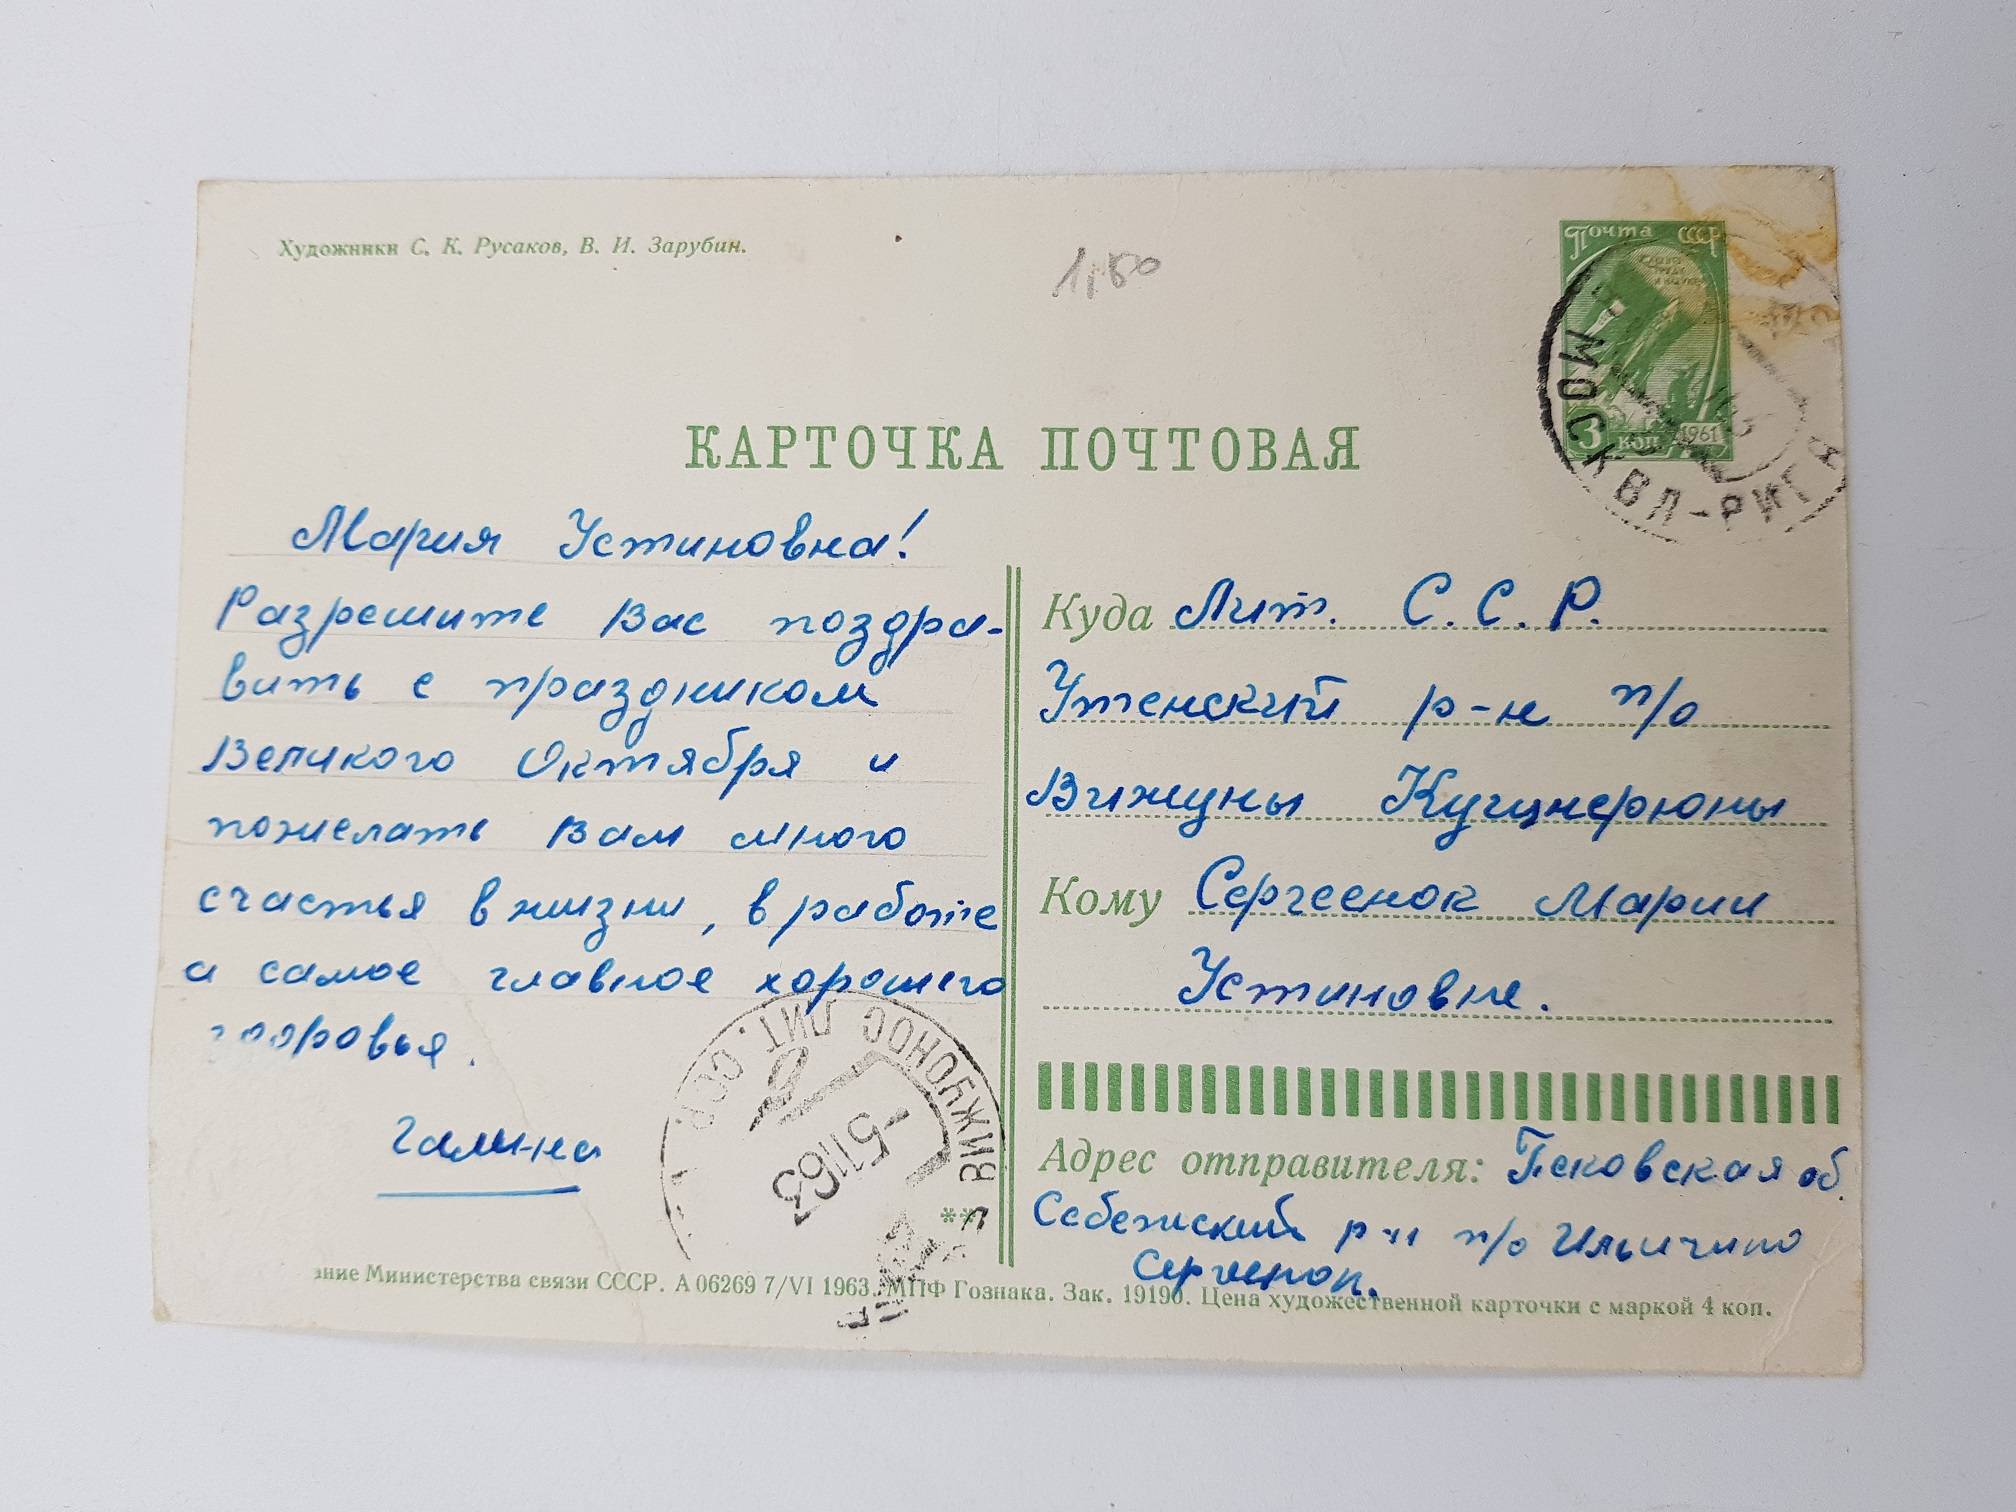 Художники С. К. Русаков, В. И. Зарубин.
1,50
Почта СССР
3 коп 1961
МОСКВА-РИГА
КАРТОЧКА ПОЧТОВАЯ
Мария Устиновна!
Разрешите Вас поздра-
вить с праздником
Великого Октября и
пожелать Вам много
счастья в жизни, в работе
а самое главное хорошего
здоровья.
Галина
Куда Лит. С.С.Р.
Утенский р-н п/о
Вижуны
Кому Сергеенок Марии
Устиновне.
ВИЖУОНОС ЛИТ. ССР
-51163
**
Адрес отправителя: Псковская об.
Себежский р-н п/о Ильичино
Сергеенок.
ание Министерства связи СССР. А 06269 7/VI 1963. МПФ Гознака. Зак. 19190. Цена художественной карточки с маркой 4 коп.